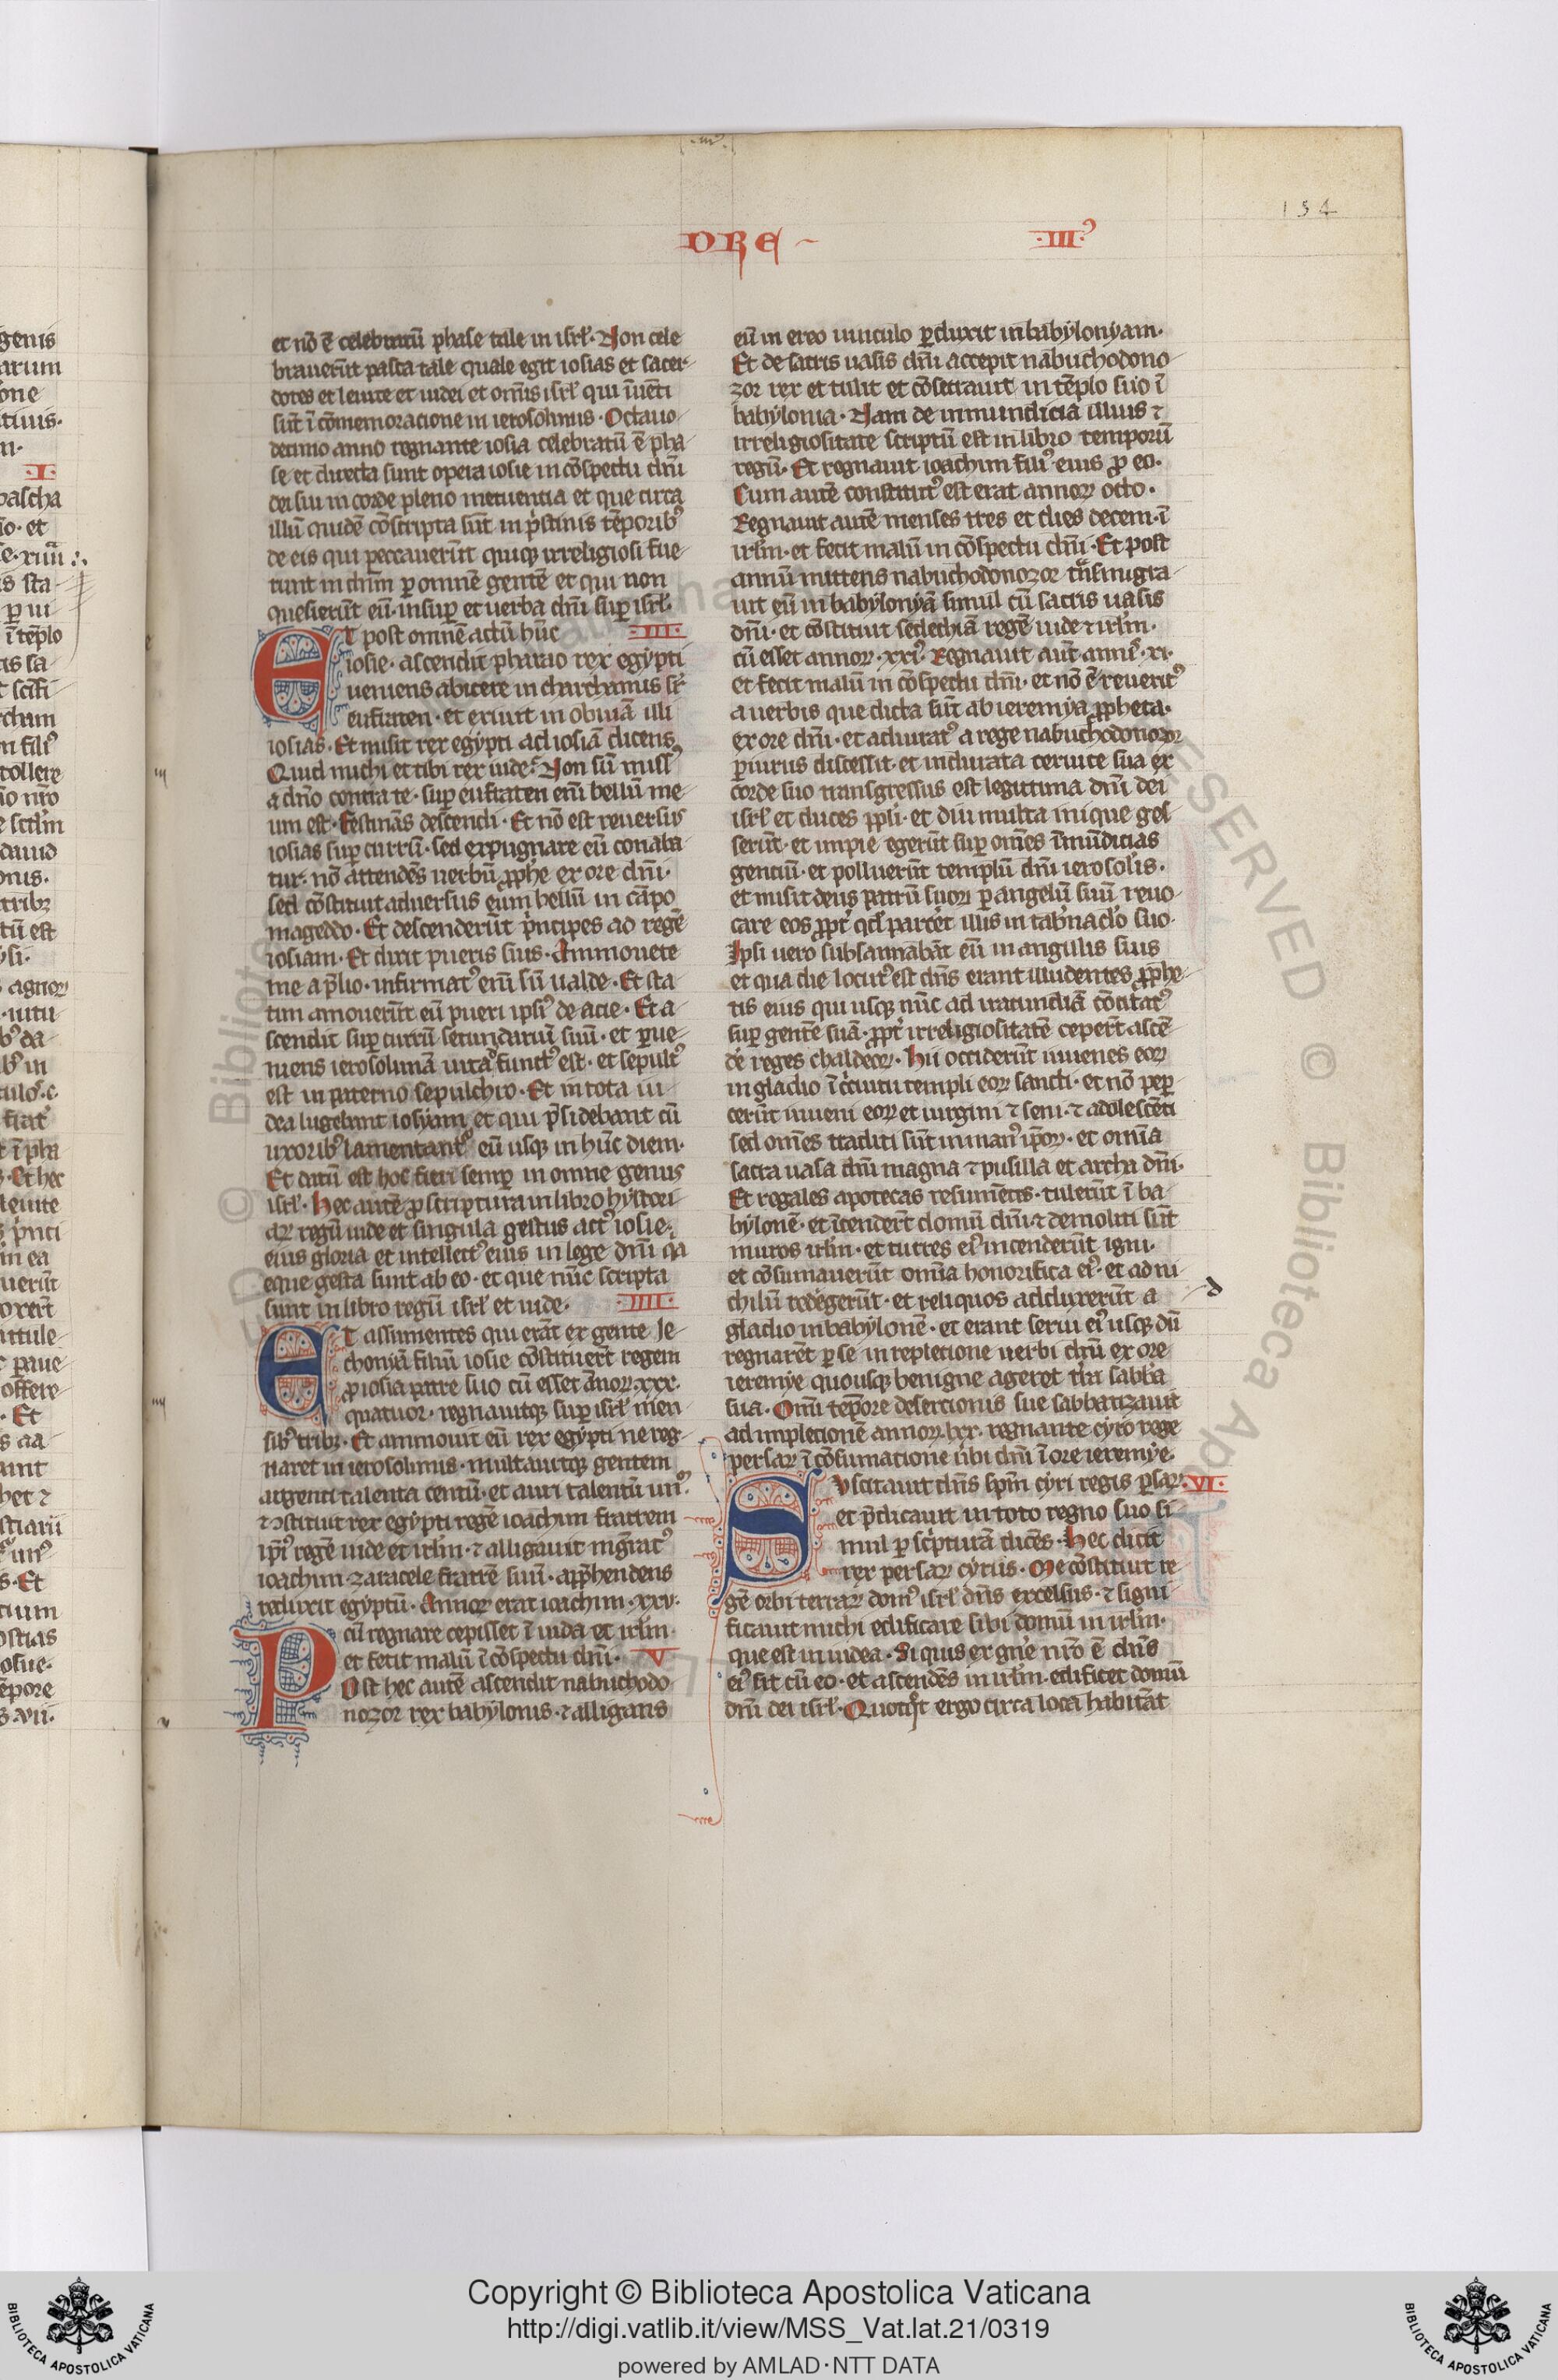 ·III·
154
DRE
·III·
et nō ē celebratū phase tale in isrl̄· Non cele
brauerūt pasca tale quale egit iosias et sacer
dotes et leuite et iudei et om̄is isrl̄ qui īuēti
sūt ī cōmemoracione in ierosolimis· Octauo
decimo anno regnante iosia celebratū ē pha
se et directa sunt opera iosie in cōspectu dn̄i
dei sui in corde pleno metuentia et que circa
illū quidē cōscripta sūt in pͥstinis tēporibꝰ
de eis qui peccauerūt quiqꝫ irreligiosi fue
runt in dn̄m ꝑ omnē gentē et qui non
quesierūt eū· insuꝑ et uerba dn̄i suꝑ isrl̄·
ET post omnē actū hūc ·III·
iosie· ascendit pharao rex egypti
ueniens abicere in charchamis sr̄
eufraten· et exiuit in obuiā illi
iosias· Et misit rex egypti ad iosiā dicens
Quid michi et tibi rex iude· Non sū missꝰ
a dn̄o contra te· suꝑ eufraten eni bellū me
um est· Festinās descendi· Et nō est reuersus
iosias suꝑ currū· sed expugnare eū conaba
tur· nō attendēs uerbū ꝓphe ex ore dn̄i·
sed cōstituit aduersus eum bellū in cāpo
mageddo· Et descenderūt pͥncipes ad regē
iosiam· Et dixit pueris suis· Ammouete
me a p̄lio· infirmatꝰ eni sū ualde· Et sta
tim amouerūt eū pueri ipsiꝰ de acie· Et a
scendit suꝑ currū secundariū suū· et ꝑue
niens ierosolimā uita functꝰ est· et sepultꝰ
est in paterno sepulchro· Et in tota iu
dea lugebant iosyam et qui p̄sidebant cū
uxoribꝰ lamentantꝰ eū usqꝫ in hūc diem·
Et datū est hoc fieri semꝑ in omne genus
isrl̄· Hec autē ꝓscriptura in libro hystori
aꝝ regū iude et singula gestus actꝰ iosie·
eius gloria et intellectꝰ eius in lege dn̄i q̄a
eque gesta sunt ab eo· et que nūc scripta
sunt in libro regū isrl̄ et iude· ·IIII·
ET assumentes qui erāt ex gente Je
choniā filiū iosie cōstituert̄ regem
ꝓ iosia patre suo cū esset ānoꝝ xxx·
quatuor· regnauitqꝫ suꝑ isrl̄ men
sibꝰ tribꝫ· Et ammouit eū rex egypti ne reg
naret in ierosolimis· multauitqꝫ gentem
argenti talenta centū· et auri talentū unꝰ·
⁊ ꝯstituit rex egypti regē ioachim fratrem
ip̄iꝰ regē iude et irl̄m· ⁊ alligauit mgratꝰ
ioachim· zaracele fratrē suū· app̄hendens
reduxit egyptū· Annoꝝ erat ioachim· xxv·
cū regnare cepisset ī iuda et irl̄m·
et fecit malū ī cōspectu dn̄i· V
POst hec autē ascendit nabuchodo
nozor rex babylonis· ⁊ alligans
eū in ereo uinculo ꝑduxit in babylonyam·
Et de sacris uasis dn̄i accepit nabuchodono
zor rex et tulit et cōsecrauit in tēplo suo ī
babylonia· Nam de inmundicia illius ⁊
irreligiositate scriptū est in libro temporū
regū· Et regnauit ioachim filiꝰ eius ꝓ eo·
Cum autē constitutꝰ est erat annoꝝ octo·
Regnauit autē menses tres et dies decem· ī
irl̄m· et fecit malū in cōspectu dn̄i· Et post
annū mittens nabuchodonozor trāsmigra
uit eū in babylonyā simul cū sacris uasis
dn̄i· et cōstituit sedechiā regē iude ⁊ irl̄m·
cū esset annoꝝ· xxiꝰ· Regnauit aūt annis· xi·
et fecit malū in cōspectu dn̄i· et nō ē reueritꝰ
a uerbis que dicta sūt ab ieremya ꝓpheta·
ex ore dn̄i· et adiuratꝰ a rege nabuchodonozor
ꝑiurus discessit· et indurata ceruice sua ex
corde suo transgressus est legittima dn̄i dei
isrl̄ et duces ppl̄i· et diu multa inique ges
serūt· et impie egerūt suꝑ om̄es īmūdicias
gentiū· et polluerūt templū dn̄i ierosolis·
et misit deus patrū suoꝝ ꝑ angelū suū reuo
care eos ꝓpt̄ qd̄ parcer̄t illis in tab̄naclo suo·
Ipsi uero subsannabāt eū in angulis suis
et qua die locutꝰ est dn̄s erant illudentes ꝓphe
tis eius qui usqꝫ nūc ad iracundiā cōcitatꝰ
suꝑ gentē suā· ꝓpt̄ irreligiositatē ceper̄t ascē
de reges chaldeoꝝ· Hii occiderūt iuuenes eoꝝ
in gladio ī cͥcuitu templi eoꝝ sancti· et nō peꝑ
cerūt iuueni eoꝝ et uirgini ⁊ seni· ⁊ adolescēti
sed om̄es traditi sūt in manꝰ ip̄oꝝ· et om̄ia
sacra uasa dn̄i magna ⁊ pusilla et archa dn̄i·
Et regales apotecas resumētes· tulerūt ī ba
bylonē· et īcender̄t domū dn̄i ⁊ demoliti sūt
muros irl̄m· et turres eiꝰ incenderūt igni·
et cōsumauerūt om̄ia honorifica eiꝰ· et ad ni
chilū redegerūt· et reliquos adduxerūt a
gladio in babylonē· et erant serui eiꝰ usqꝫ dū
regnarēt ꝑse in repletione uerbi dn̄i ex ore
ieremye quousqꝫ benigne ageret t̄ra sabb̄a
sua· Om̄i tēpore desertionis sue sabbatizauit
ad impletionē annoꝝ· lxx· regnante cyro rege
persaꝝ ī cōsumatione ūbi dn̄i ī ore ieremye·
SVscitauit dn̄s sp̄m cyri regis ꝑsaꝝ· ·VI·
et p̄dicauit in toto regno suo si
mul ꝑ scͥpturā dicēs· Hec dicit
rex persaꝝ cyrus· Me cōstituit re
gē orbi terraꝝ domꝰ isrl̄ dn̄s excelsus· ⁊ signi
ficauit michi edificare sibi domū in irl̄m·
que est in iudea· Si quis ex gn̄e nr̄o ē dn̄s
eiꝰ sit cū eo· et ascendēs in irl̄m· edificet domū
dn̄i dei isrl̄· Quotqt̄ ergo circa loca habitāt
Copyright © Biblioteca Apostolica Vaticana
http://digi.vatlib.it/view/MSS_Vat.lat.21/0319
powered by AMLAD·NTT DATA
BIBLIOTECA APOSTOLICA VATICANA
BIBLIOTECA APOSTOLICA VATICANA